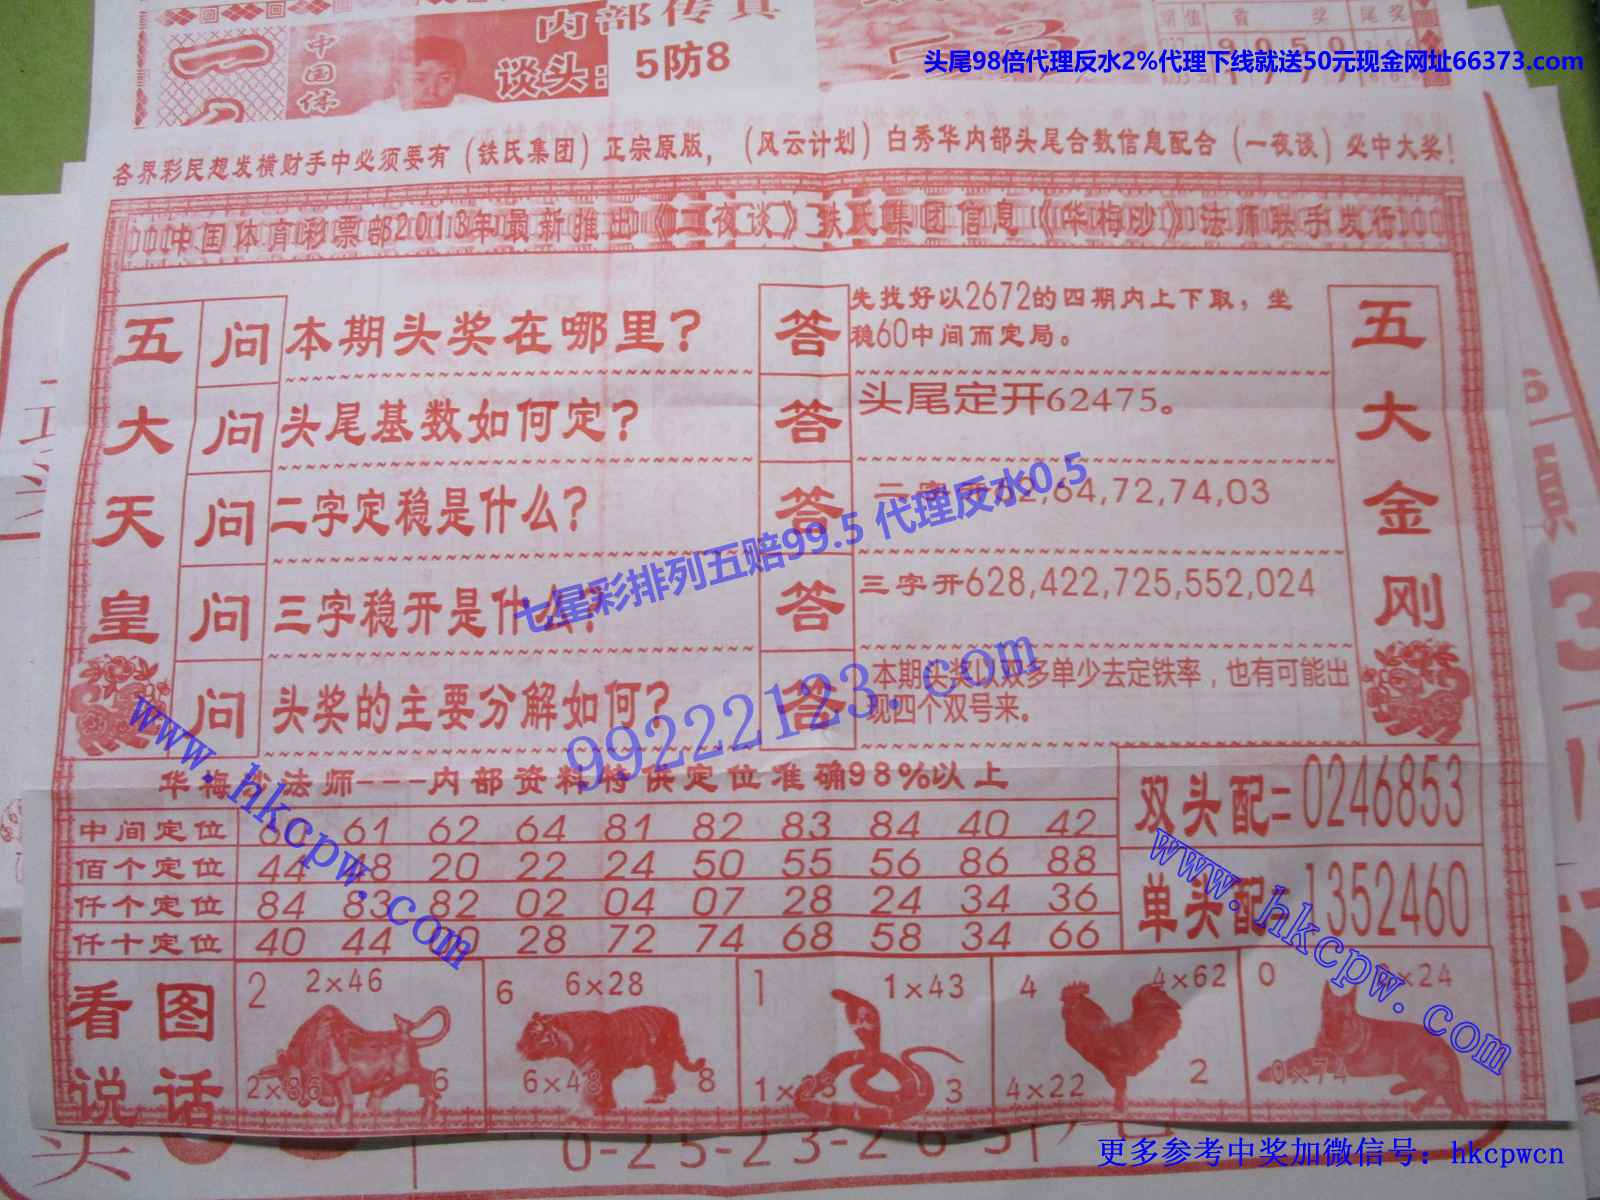 内部传真
中国体
谈头：
5防8
头尾98倍代理反水2%代理下线就送50元现金网址66373.com
各界彩民想发横财手中必须要有（铁氏集团）正宗原版，（风云计划）白秀华内部头尾合数信息配合（一夜谈）必中大奖！
中国体育彩票部2013年最新推出《二夜谈》铁氏集团信息《华梅砂》法师联手发行
五大天皇
五大金刚
问 本期头奖在哪里？
答 先找好以2672的四期内上下取，坐
稳60中间而定局。
问 头尾基数如何定？
答 头尾定开62475。
问 二字定稳是什么？
答 二字开62,64,72,74,03
七星彩排列五赔99.5 代理反水0.5
问 三字稳开是什么？
答 三字开628,422,725,552,024
问 头奖的主要分解如何？
答 本期头奖以双多单少去定铁率，也有可能出
现四个双号来。
99222123.com
www.hkcpw.com
华梅砂法师---内部资料特供定位准确98%以上
中间定位 61 62 64 81 82 83 84 40 42
佰个定位 44 48 20 22 24 50 55 56 86 88
仟个定位 84 83 82 02 04 07 28 24 34 36
仟十定位 40 44 28 72 74 68 58 34 66
双头配=0246853
单头配=1352460
www.hkcpw.com
看图说话
2 2×46
2×86 6
6 6×28
6×48 8
1 1×43
1×23 3
4 4×62
4×22 2
0 0×24
0×74
头
0-25-23-26-5
更多参考中奖加微信号：hkcpwcn